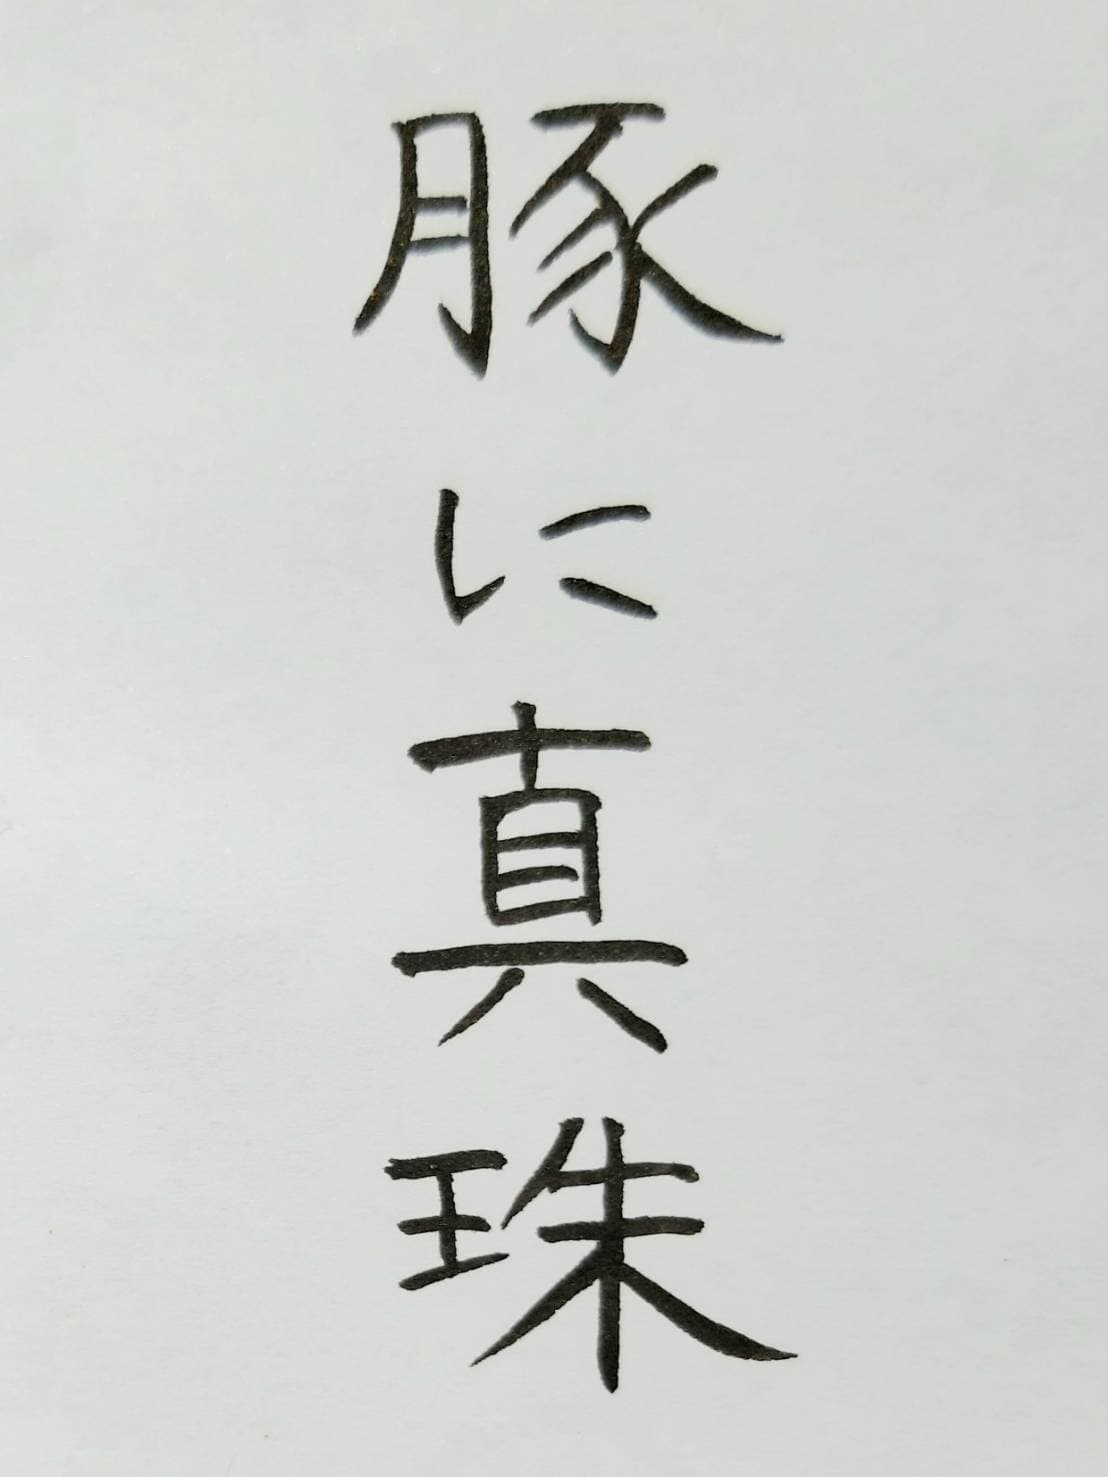 豚に真珠